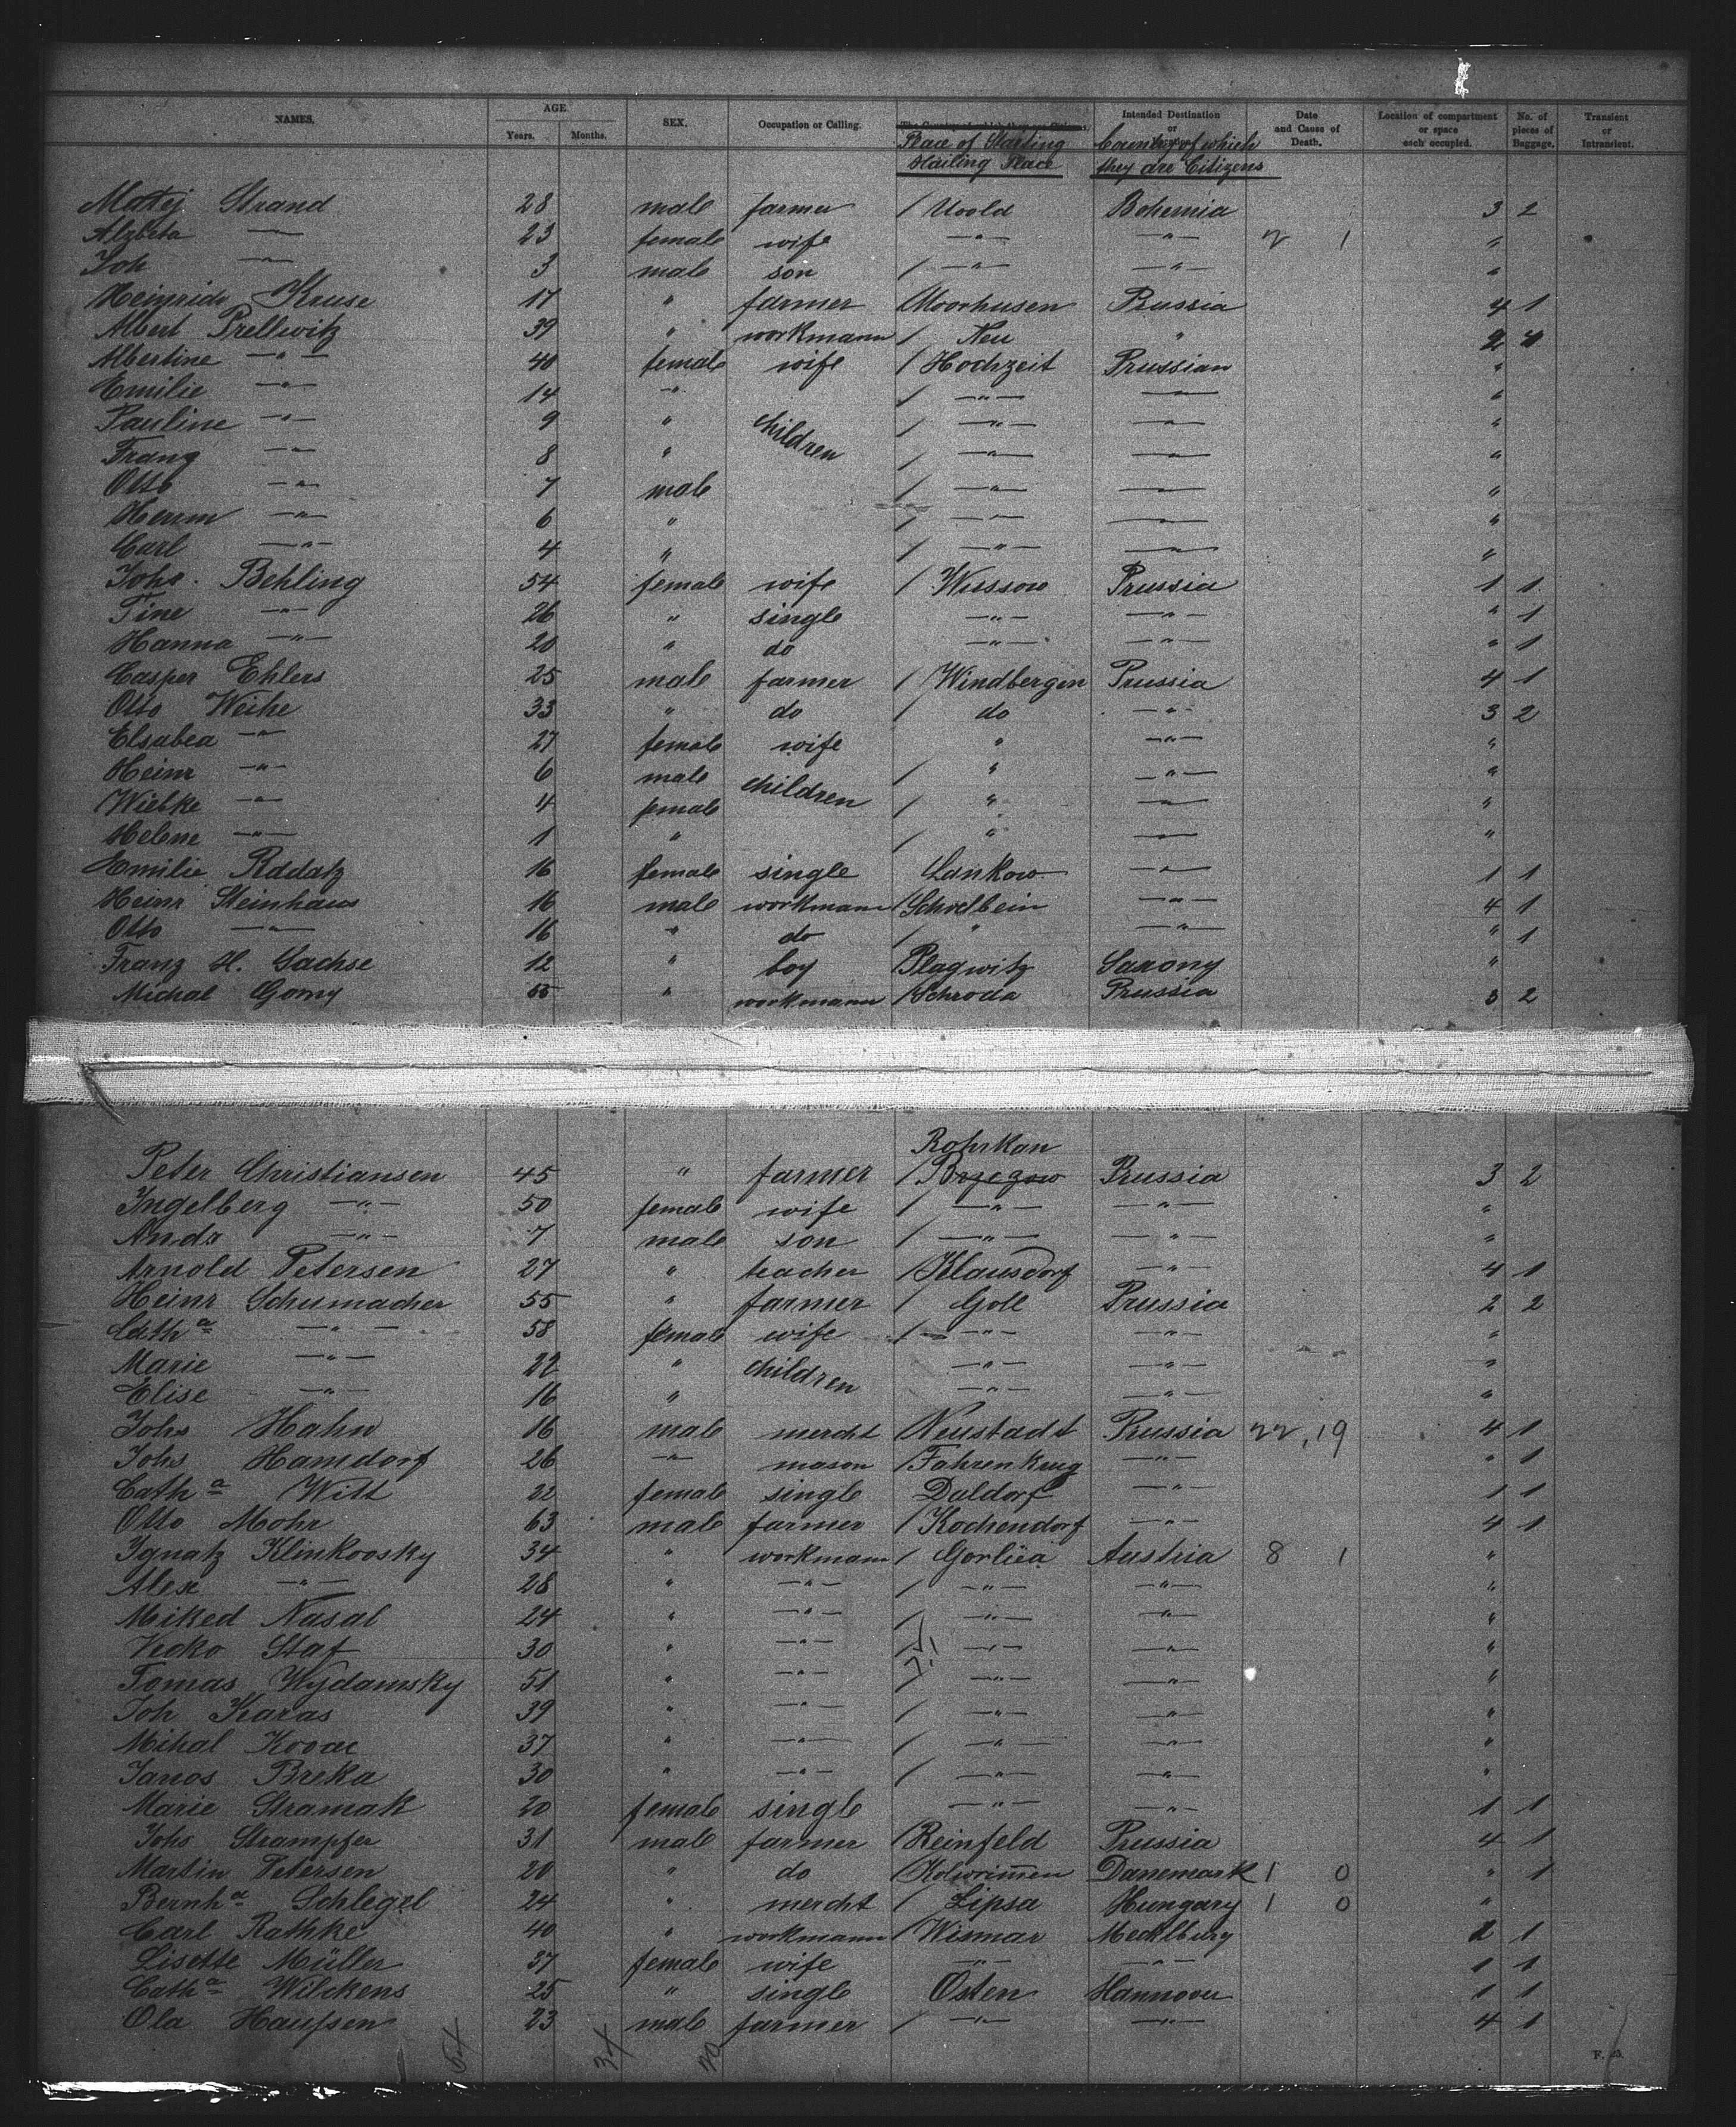 NAMES. AGE. Years. Months. SEX. Occupation or Calling. Intended Destination or Date and Cause of Death. Location of compartment or space each occupied. No. of pieces of Baggage. Transient or Intransient.
Place of Starting Country of which
Hailing Place they are Citizens
Matej Strand 28 male farmer / Uvold Bohemia 3 2
Alzbeta —— 23 female wife —"— —"— 2 1 "
Joh —"— 3 male son / —"— —"— "
Heinrich Kruse 17 " farmer / Moorhusen Prussia 4 1
Albert Prellwitz 39 " workmann / Neu " 2 4
Albertine —"— 40 female wife / Hochzeit Prussian "
Emilie —"— 14 —"— / —"— —"— "
Pauline —"— 9 " children / —"— —"— "
Franz —"— 8 " / —"— —"— "
Otto —"— 7 male / —"— —"— "
Herrm —"— 6 " / —"— —"— "
Carl —"— 4 " / —"— —"— "
Johs. Behling 54 female wife / Wussow Prussia 1 1
Tine —"— 26 " single —"— —"— " 1
Hanna —"— 20 " do —"— —"— " 1
Casper Ehlers 25 male farmer / Windbergen Prussia 4 1
Otto Weihe 33 " do / do —"— 3 2
Elsabea —"— 27 female wife " —"— "
Heinr —"— 6 male children / " —"— "
Wiebke —"— 4 female / " —"— "
Helene —"— 1 " / " —"— "
Emilie Rddatz 16 female single Lankow —"— 1 1
Heinr Steinhaus 16 male workmann / Schvelbein —"— 4 1
Otto —"— 16 " do / " —"— " 1
Franz H. Sachse 12 " boy Plagwitz Saxony "
Michal Gorny 55 " workmann / Schroda Prussia 3 2
Rohrkan
Peter Christiansen 45 " farmer / Brzezow Prussia 3 2
Ingelberg —"— 50 female wife / —"— —"— "
Ands —"— 7 male son / —"— —"— "
Arnold Petersen 27 " teacher / Klausdorf —"— 4 1
Heinr Schumacher 55 " farmer / Goll Prussia 2 2
Catha —"— 58 female wife / —"— —"— "
Marie —"— 22 " children —"— —"— "
Elise —"— 16 " —"— —"— "
Johs Hahn 16 male mercht / Neustadt Prussia 22, 19 4 1
Johs Hamdorf 26 —"— mason / Fahrenkrug —"— " 1
Catha Witt 22 female single Daldorf —"— 1 1
Otto Mohr 63 male farmer / Kochendorf —"— 4 1
Ignatz Klinkovsky 34 " workmann / Gorliea Austria 8 1 "
Alex —"— 28 " —"— / —"— —"— "
Miked Nasal 24 " —"— / —"— —"— "
Vecko Staf 30 " —"— / —"— —"— "
Tomas Wydamsky 51 " —"— / —"— —"— "
Joh Karas 39 " —"— / —"— —"— "
Mihal Kovac 37 " —"— / —"— —"— "
Janos Breka 30 " —"— / —"— —"— "
Marie Stramak 20 female single —"— —"— 1 1
Johs Strampfer 31 male farmer / Reinfeld Prussia 4 1
Martin Petersen 20 " do / Danemark 1 0 " 1
Bernha Schlegel 24 " mercht / Lipsa Hungary 1 0 "
Carl Rathke 40 " workmann / Wismar Mecklburg 2 1
Lisette Müller 37 female wife —"— —"— 1 1
Catha Wilckens 25 " single Osten Hannover 1 1
Ola Haussen 23 male farmer / —"— —"— 4 1
64 34 20